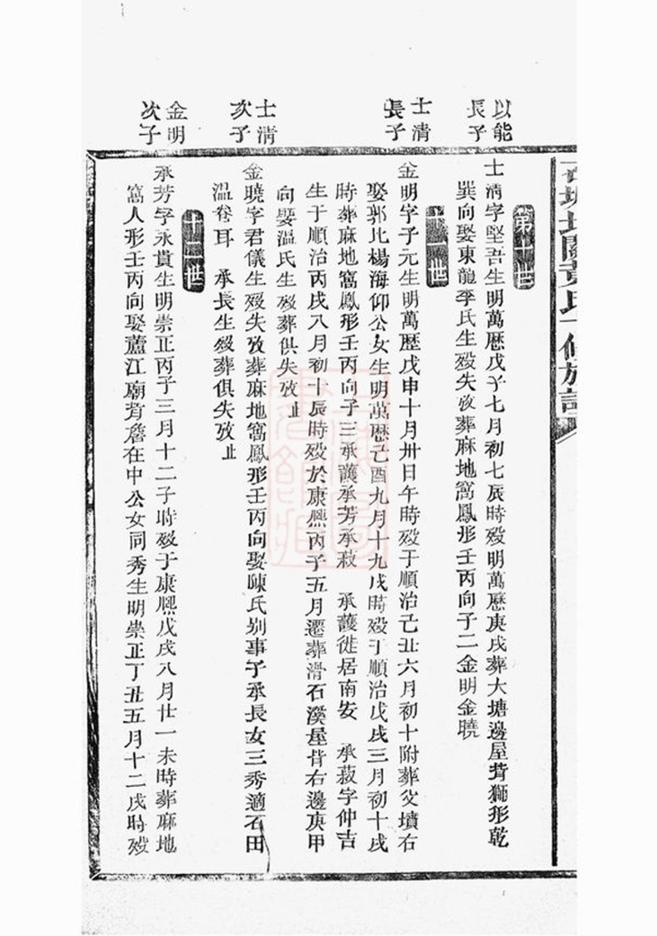 黄氏一修族譜
第十世
以能
長子
士清字堅吾生明萬歷戊子七月初七辰時歿明萬歷庚戌葬大塘邊屋背獅形乾
巽向娶東龍李氏生歿失攷葬麻地窩鳳形壬丙向子二金明金曉
十一世
士清
長子
金明字子元生明萬歷戊申十月卅日午時歿于順治己丑六月初十附葬父墳右
娶郭北楊海仰公女生明萬歷己酉九月十九戌時歿于順治戊戌三月初十戌
時葬麻地窩鳳形壬丙向子三承護承芳承菽 承護徙居南安 承菽字仲吉
生于順治丙戌八月初十辰時歿於康熙丙子五月遷葬滑石漢屋背右邊庚甲
向娶溫氏生歿葬俱失攷止
士清
次子
金曉字君儀生歿失攷葬麻地窩鳳形壬丙向娶陳氏别事子承長女三秀適石田
溫卷耳 承長生歿葬俱失攷止
十二世
金明
次子
承芳字永貴生明崇正丙子三月十二子時歿于康熙戊戌八月廿一未時葬麻地
窩人形壬丙向娶蘆江廟背詹在中公女同秀生明崇正丁丑五月十二戌時歿